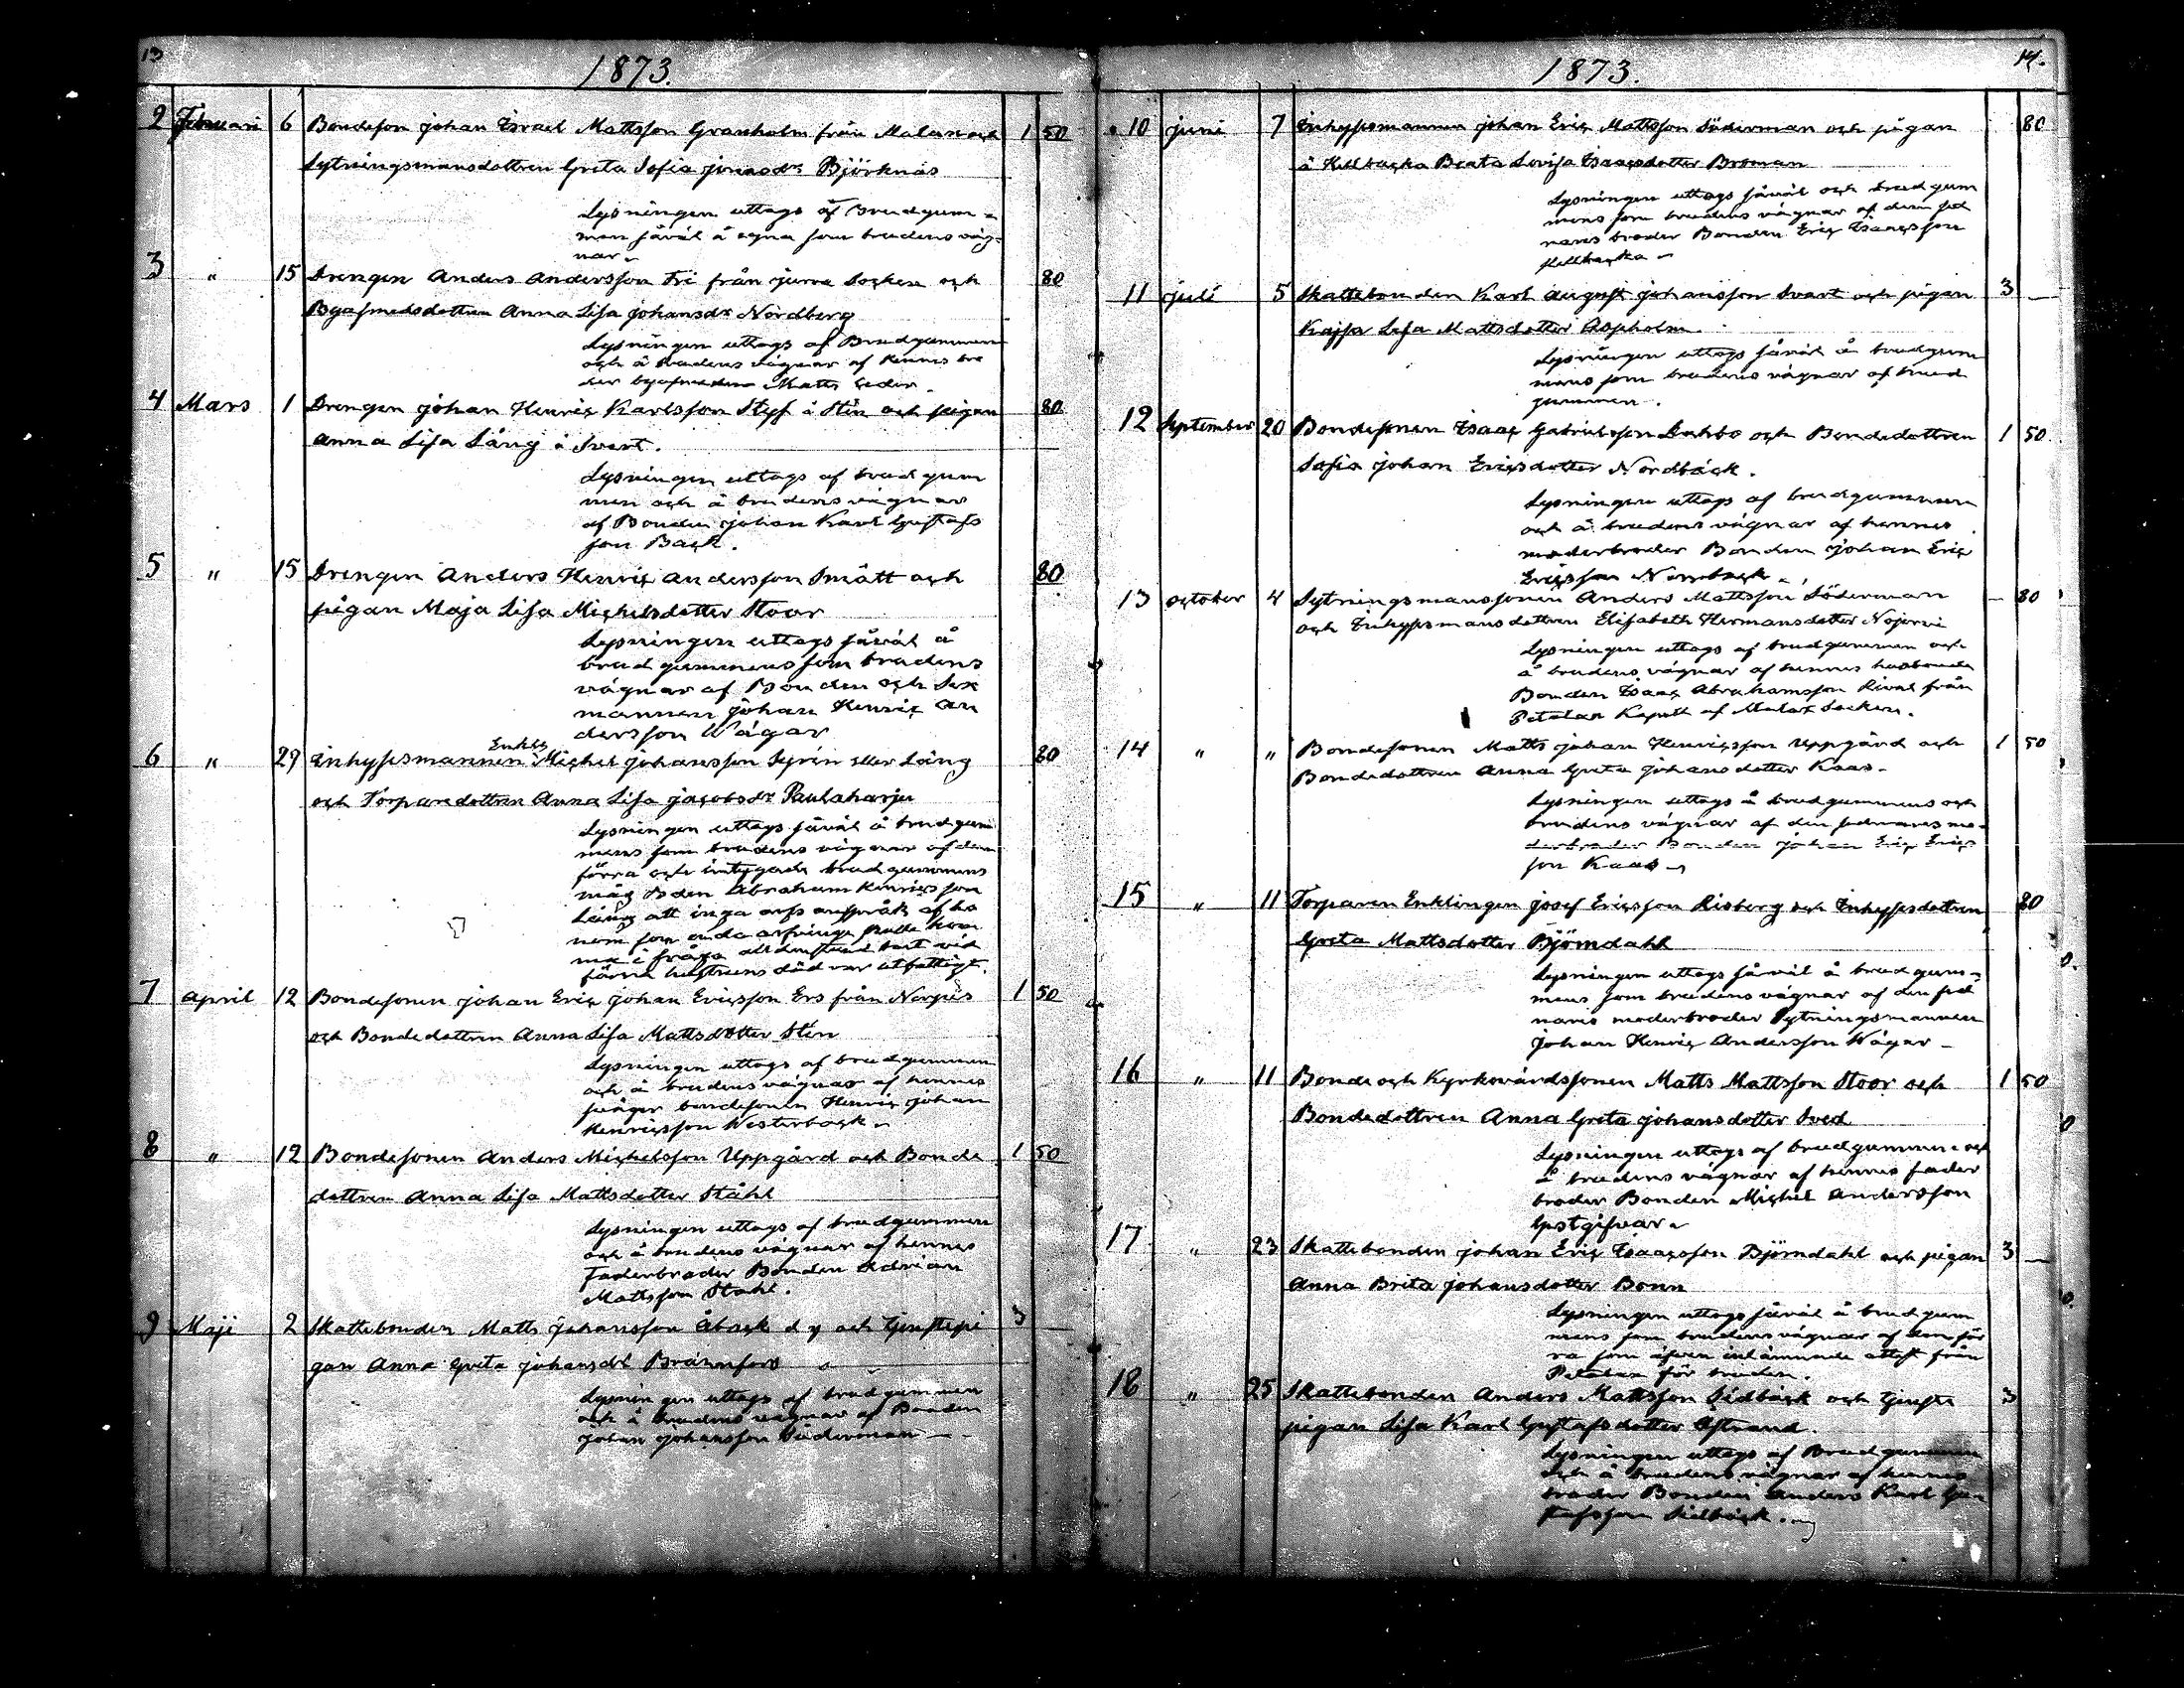 13
1873.
2 Februari 6 Bondeson Johan Israel Mattsson Granholm från Malax och 1 50
Sytningsmansdottren Greta Sofia Jonasdr Björknäs
Lysningen uttogs af Brudgum-
men såväl å egna som brudens väg-
nar.
3 " 15 Drengen Anders Andersson Fri från Jurva Socken och 80
Byasmedsdottren Anna Lisa Johansdr Nordberg
Lysningen uttogs af Brudgummen
och å brudens vägnar af hennes bro
der byasmeden Matts
4 Mars 1 Drengen Johan Henric Karlsson Styf å Stin och pigan 80
Anna Lisa Lång å Svart.
Lysningen uttogs af brudgum
men och å brudens vägnar
af Bonden Johan Karl Gustafs
son Back.
5 " 15 Drengen Anders Henric Andersson Smått och 80
pigan Maja Lisa Michelsdotter Stoor
Lysningen uttogs såväl å
brudgummens som brudens
vägnar af Bonden och Sex
mannen Johan Henric An
dersson Wägar
6 " 29 Inhysesmannen Enkl Michel Johansson Sjrin eller Lång 80
och Torparedottren Anna Lisa Jacobsdr Paulaharju
Lysningen uttogs såväl å brudgum
mens som brudens vägnar af den
förra och intygade brudgummens
måg Bden Abraham Henricsson
Lång att inga arfs anspråk af ho
nom som enda arfvinge skulle kom
ma i fråga alldenstund boet vid
förra hustruns död var utfattigt.
7 April 12 Bondesonen Johan Eric Johan Ericsson Ers från Nerpes 1 50
och Bondedottren Anna Lisa Mattsdotter Stin
Lysningen uttogs af brudgummen
och å brudens vägnar af hennes
svåger bondesonen Henric Johan
Henricsson Westerback.
8 " 12 Bondesonen Anders Michelsson Uppgård och Bonde 1 50
dottren Anna Lisa Mattsdotter Ståhl
Lysningen uttogs af brudgummen
och å brudens vägnar af hennes
Faderbroder Bonden Adrian
Mattsson Ståhl.
9 Maji 2 Skattebonden Matts Johansson Åback d y och tjenstepi 3 —
gan Anna Greta Johansdr Brännfors
Lysningen uttogs af brudgummen
och å brudens vägnar af Bonden
Johan Johansson Söderman —
14.
1873.
10 Juni 7 Inhysesmannen Johan Eric Mattsson Söderman och pigan 80
å Killbacka Beata Lovisa Isaacsdotter Broman
Lysningen uttogs såväl och brudgum
mens som brudens vägnar af den sed
nares broder Bonden Eric Isaacsson
Killbacka
11 Juli 5 Skattebonden Karl August Johansson Svart och pigan 3 —
Kajsa Lisa Mattsdotter Aspholm.
Lysningen uttogs såväl å brudgum
mens som brudens vägnar af brud
gummen.
12 September 20 Bondesonen Isaac Gabrielsson Dahlbo och Bondedottren 1 50
Sofia Johan Ericsdotter Nordbäck.
Lysningen uttogs af brudgummen
och å brudens vägnar af hennes
moderbroder Bonden Johan Eric
Ericsson Norrback.
13 October 4 Sytningsmanssonen Anders Mattsson Söderman — 80
och Inhysesmansdottren Elisabeth Hermansdotter Nojervi
Lysningen uttogs af brudgummen och
å brudens vägnar af hennes husbonde
Bonden Isaac Abrahamsson Rival från
Petalax Kapell af Malax Socken.
14 " " Bondesonen Matts Johan Henricsson Uppgård och 1 50
Bondedottren Anna Greta Johansdotter Kaas.
Lysningen uttogs å brudgummens och
brudens vägnar af den sednares mo-
derbroder Bonden Johan Eric Erics
son Kaas
15 " 11 Torparen Enklingen Josef Ericsson Risberg och Inhysesdottren 80
Greta Mattsdotter Björndahl
Lysningen uttogs såväl å brudgum-
mens som brudens vägnar af den sed
nares moderbroder Sytningsmannen
Johan Henric Andersson Wägar —
16 " 11 Bonde och Kyrkovärdssonen Matts Mattsson Stoor och 1 50
Bondedottren Anna Greta Johansdotter Sved
Lysningen uttogs af brudgummen och
å brudens vägnar af hennes fader
broder Bonden Michel Andersson
Gästgifvar.
17 " 23 Skattebonden Johan Eric Isaacsson Björndahl och pigan 3 —
Anna Brita Johansdotter Bonn
Lysningen uttogs såväl å brudgum
mens som brudens vägnar af den för
ra som äfven inlämnade attest från
Petalax för bruden.
18 " 25 Skattebonden Anders Mattsson Sidbäck och tjenste 3
pigan Lisa Karl Gustafsdotter Åstrand.
Lysningen uttogs af Brudgummen
och å brudens vägnar af hennes
broder Bonden Anders Karl Gus
tafsson Sidbäck.